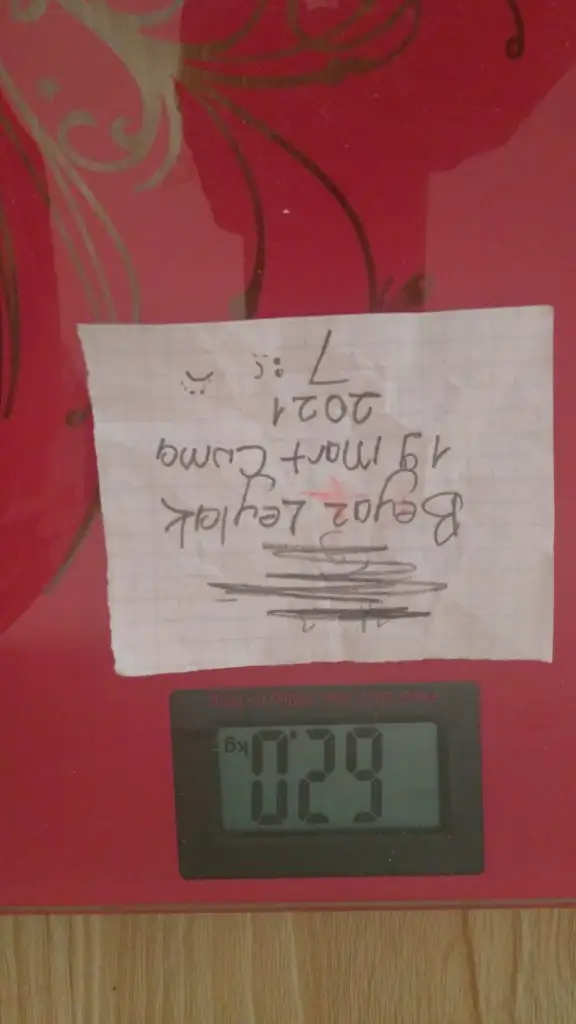 62.0 kg
Beyaz Leylak
19 Mart Cuma
2021
7 :(